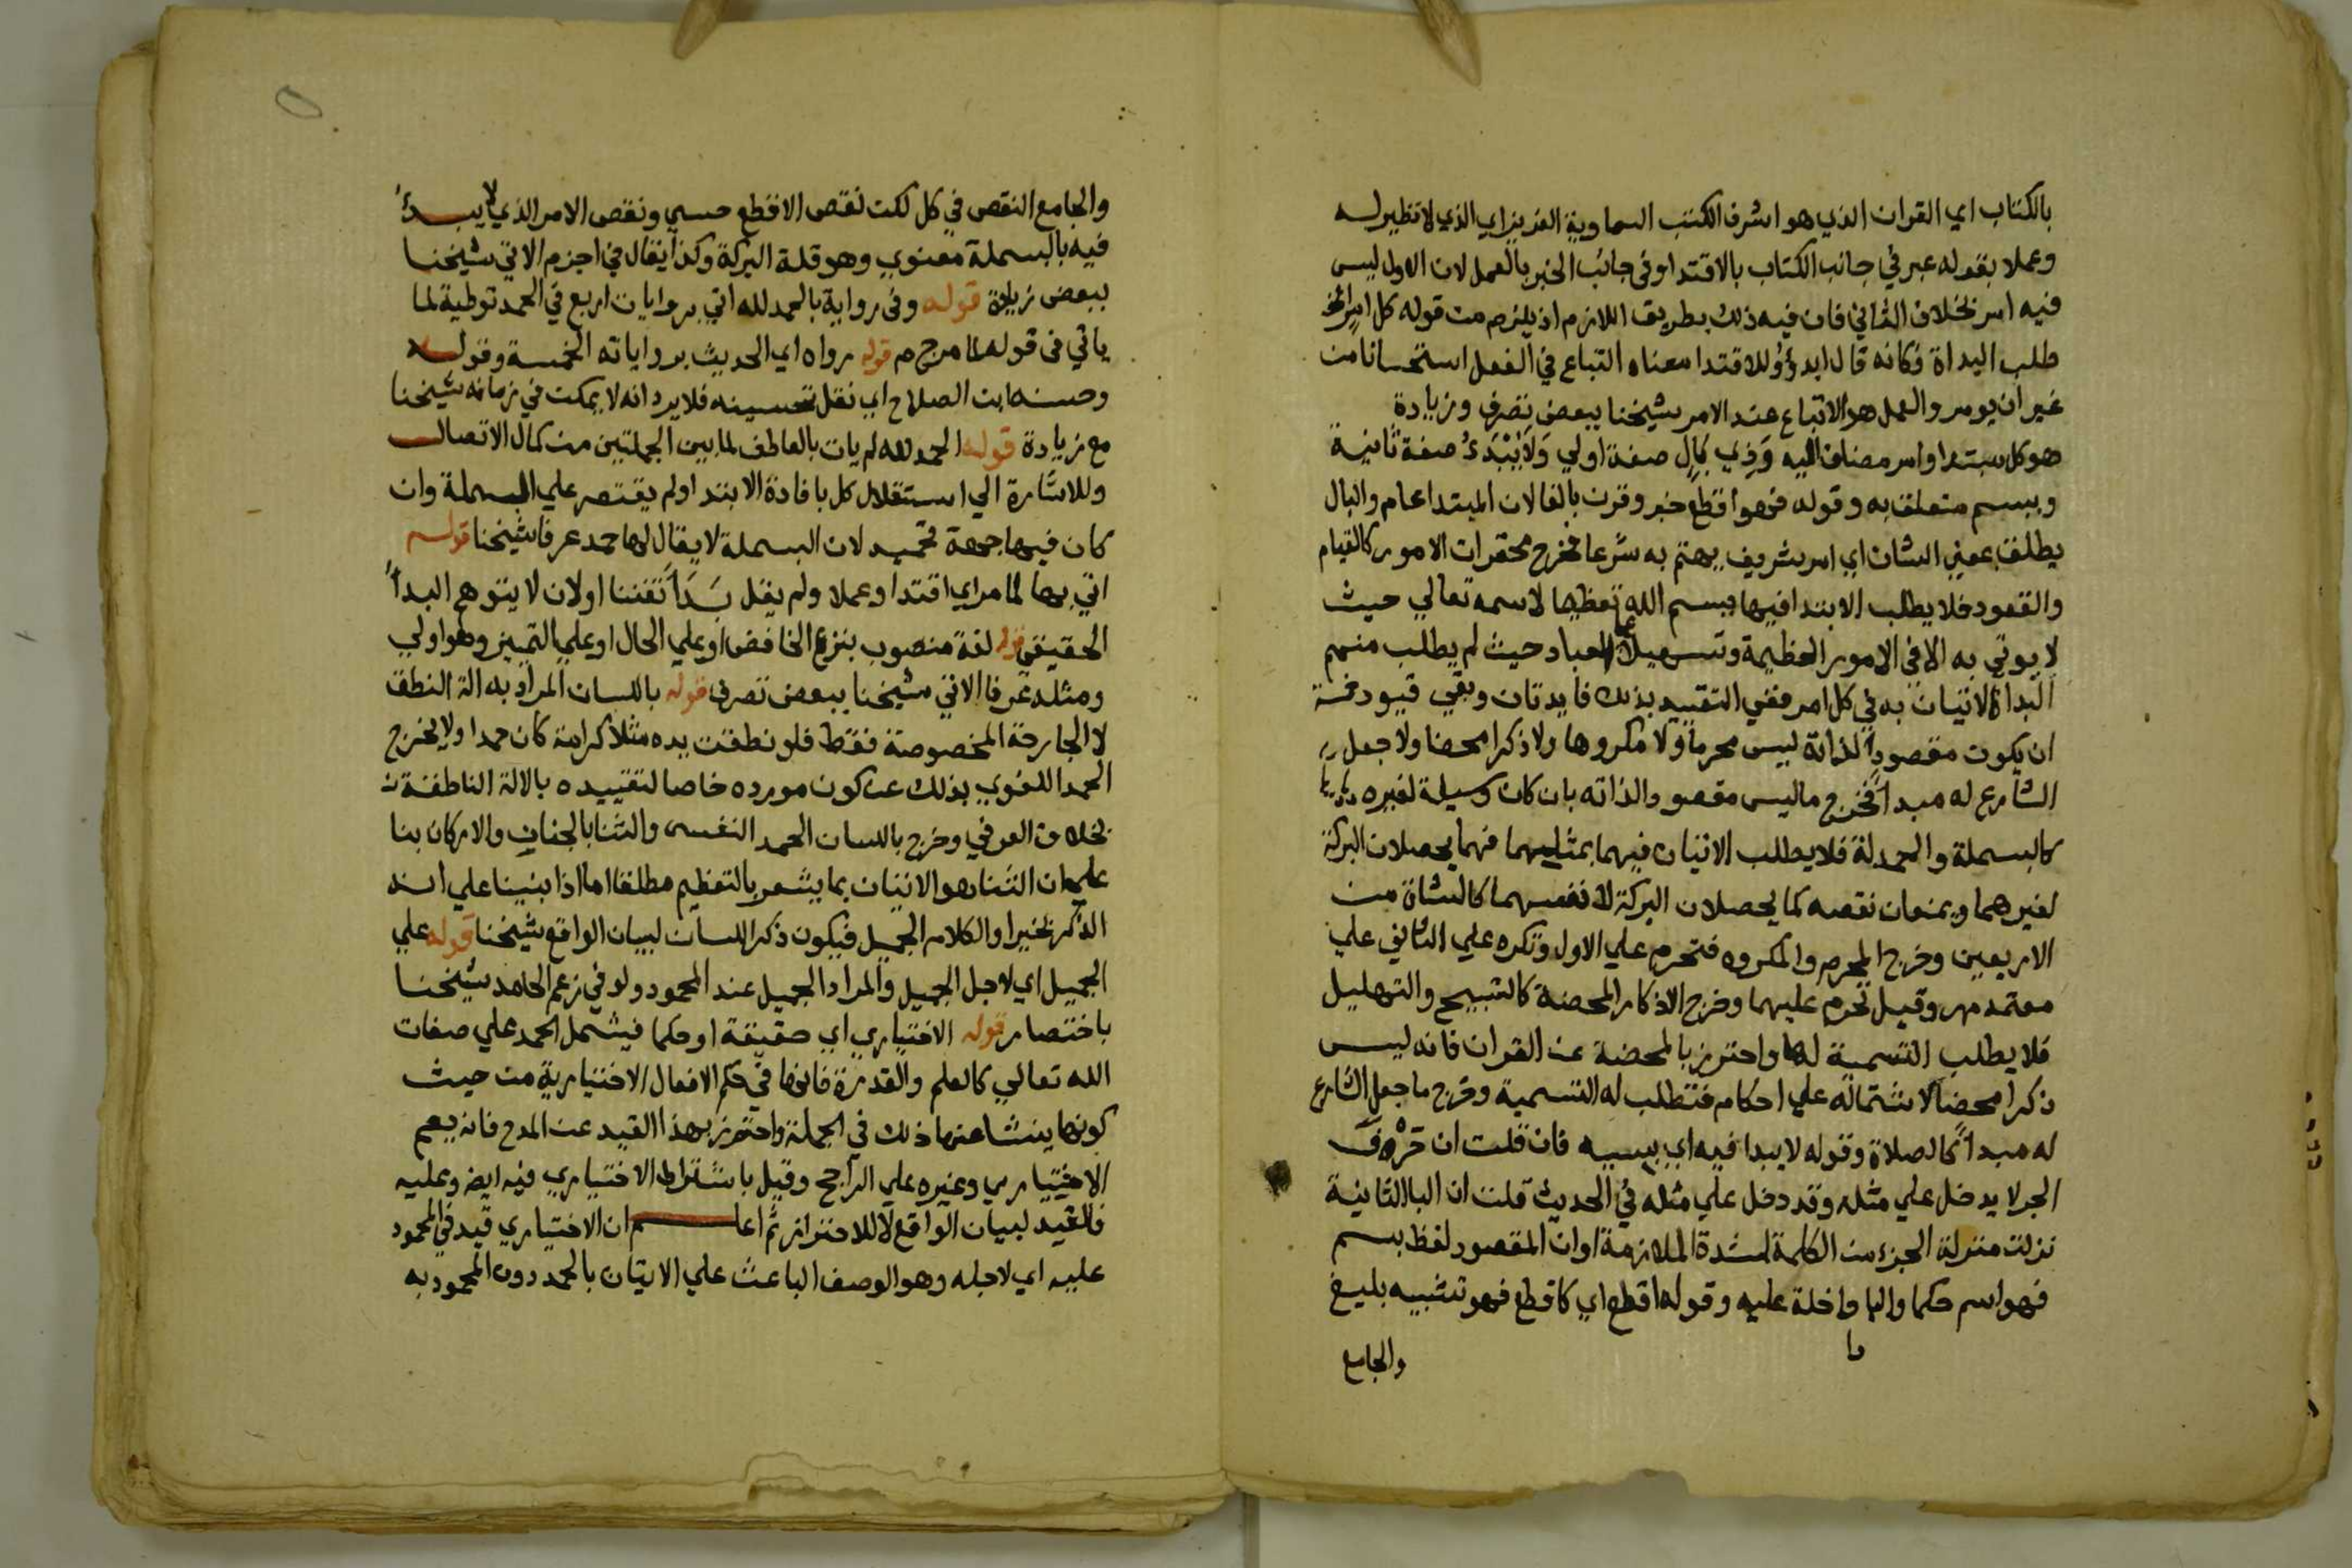 بالكتاب اي القران الذي هو اشرف الكتب السماوية العزيز اي الذي لا نظير له
وعملا بقوله عبر في جانب الكتاب بالاقتدا وفي جانب الخبر بالعمل لان الاول ليس
فيه امر بخلاف الثاني فان فيه ذلك بطريق اللازم اذ يلزم من قوله كل امر الخ
طلب البداة فكانه قال ابدؤ وللاقتدا معناه التباع في الفعل استحسانا من
غير ان يومر والعمل هو الاتباع عند الامر شيخنا ببعض تصرف وزيادة
هو كل مبتدا وامر مضاف اليه وَذِي بَالٍ صفة اولي وَلَا يُبْدَئُ صفة ثانية
وببسم متعلق به وقوله فهو اقطع خبر وقرن بالفا لان المبتدا عام والبال
يطلق بمعني الشان اي امر شريف يهتم به شرعا فخرج محقرات الامور كالقيام
والقعود فلا يطلب الابتدا فيها ببسم الله تعظيما لاسمه تعالي حيث
لا يوتي به الا في الامور العظيمة وتسهيلا علي العباد حيث لم يطلب منهم
البداة الاتيان به في كل امر ففي التقييد بذلك فايدتان وبقي قيود خمسة
ان يكون مقصودا لذاته ليس محرما ولا مكروها ولا ذكرا محضا ولا جعل
الشارع له مبدأ فخرج ما ليس مقصودا لذاته بان كان وسيلة لغيره
كالبسملة والحمدلة فلا يطلب الاتيان فيهما بمثليهما فهما يحصلان البركة
لغيرهما ويمنعان نقصه كما يحصلان البركة لانفسهما كالشاة من
الاربعين وخرج المحرم والمكروه فتحرم علي الاول وتكره علي الثاني علي
معتمد مر وقيل تحرم عليهما وخرج الاذكار المحضة كالتسبيح والتهليل
فلا يطلب التسمية لها واحترز بالمحضة عن القران فانه ليس
ذكرا محضا لاشتماله علي احكام فتطلب له التسمية وخرج ما جعل الشارع
له مبدأ كالصلاة وقوله لا يبدا فيه اي بسببه فان قلت ان حَرْفَ
الجر لا يدخل علي مثله وقد دخل علي مثله في الحديث قلت ان البا الثانية
نزلت منزلة الجزء من الكلمة لشدة الملازمة او ان المقصود لفظ بسم
فهو اسم حكما والبا داخلة عليه وقوله اقطع اي كاقطع فهو تشبيه بليغ
والجامع
والجامع النقص في كل لكن نقص الاقطع حسي ونقص الامر الذي لا يبدئ
فيه بالبسملة معنوي وهو قلة البركة وكذا يقال في اجزم الاتي شيخنا
ببعض زيادة قوله وفي رواية بالحمد لله اتي بروايات اربع في الحمد توطية لما
ياتي في قوله لما مرج م قوله رواه اي الحديث برواياته الخمسة وقوله
وحسنه ابن الصلاح اي نقل تحسينه فلا يرد انه لا يمكن في زمانه شيخنا
مع زيادة قوله الحمد لله لم يات بالعاطف لما بين الجملتين من كمال الاتصال
وللاشارة الي استقلال كل بافادة الابتدا ولم يقتصر علي البسملة وان
كان فيها جهة تحميد لان البسملة لا يقال لها حمد عرفا شيخنا قوله
اتي بها لما مر اي اقتدا وعملا ولم يقل بَدَأَ تفننا او لان لا يتوهم البدأ
الحقيقي قوله لغة منصوب بنزع الخافض او علي الحال او علي التمييز وهو اولي
ومثله عرفا الاتي شيخنا ببعض تصرف قوله باللسان المراد به الة النطق
لا الجارحة المخصوصة فقط فلو نطقت يده مثلا كرامة كان حمدا ولا يخرج
الحمد اللغوي بذلك عن كون مورده خاصا لتقييده بالالة الناطقة
بخلاف العرفي وخرج باللسان الحمد النفسي والثنا بالجنان والاركان بنا
علي ان الثنا هو الاتيان بما يشعر بالتعظيم مطلقا اما اذا بنينا علي انه
الذكر بخير او الكلام الجميل فيكون ذكر اللسان لبيان الواقع شيخنا قوله علي
الجميل اي لاجل الجميل والمراد الجميل عند المحمود ولو في زعم الحامد شيخنا
باختصار قوله الاختياري اي حقيقة او حكما فيشمل الحمد علي صفات
الله تعالي كالعلم والقدرة فانها في حكم الافعال الاختيارية من حيث
كونها ينشا عنها ذلك في الجملة واحترز بهذا القيد عن المدح فانه يعم
الاختياري وغيره علي الراجح وقيل باشتراط الاختياري فيه ايض وعليه
فالقيد لبيان الواقع لا للاحتراز ثم اعلم ان الاختياري قيد في المحمود
عليه اي لاجله وهو الوصف الباعث علي الاتيان بالحمد دون المحمود به